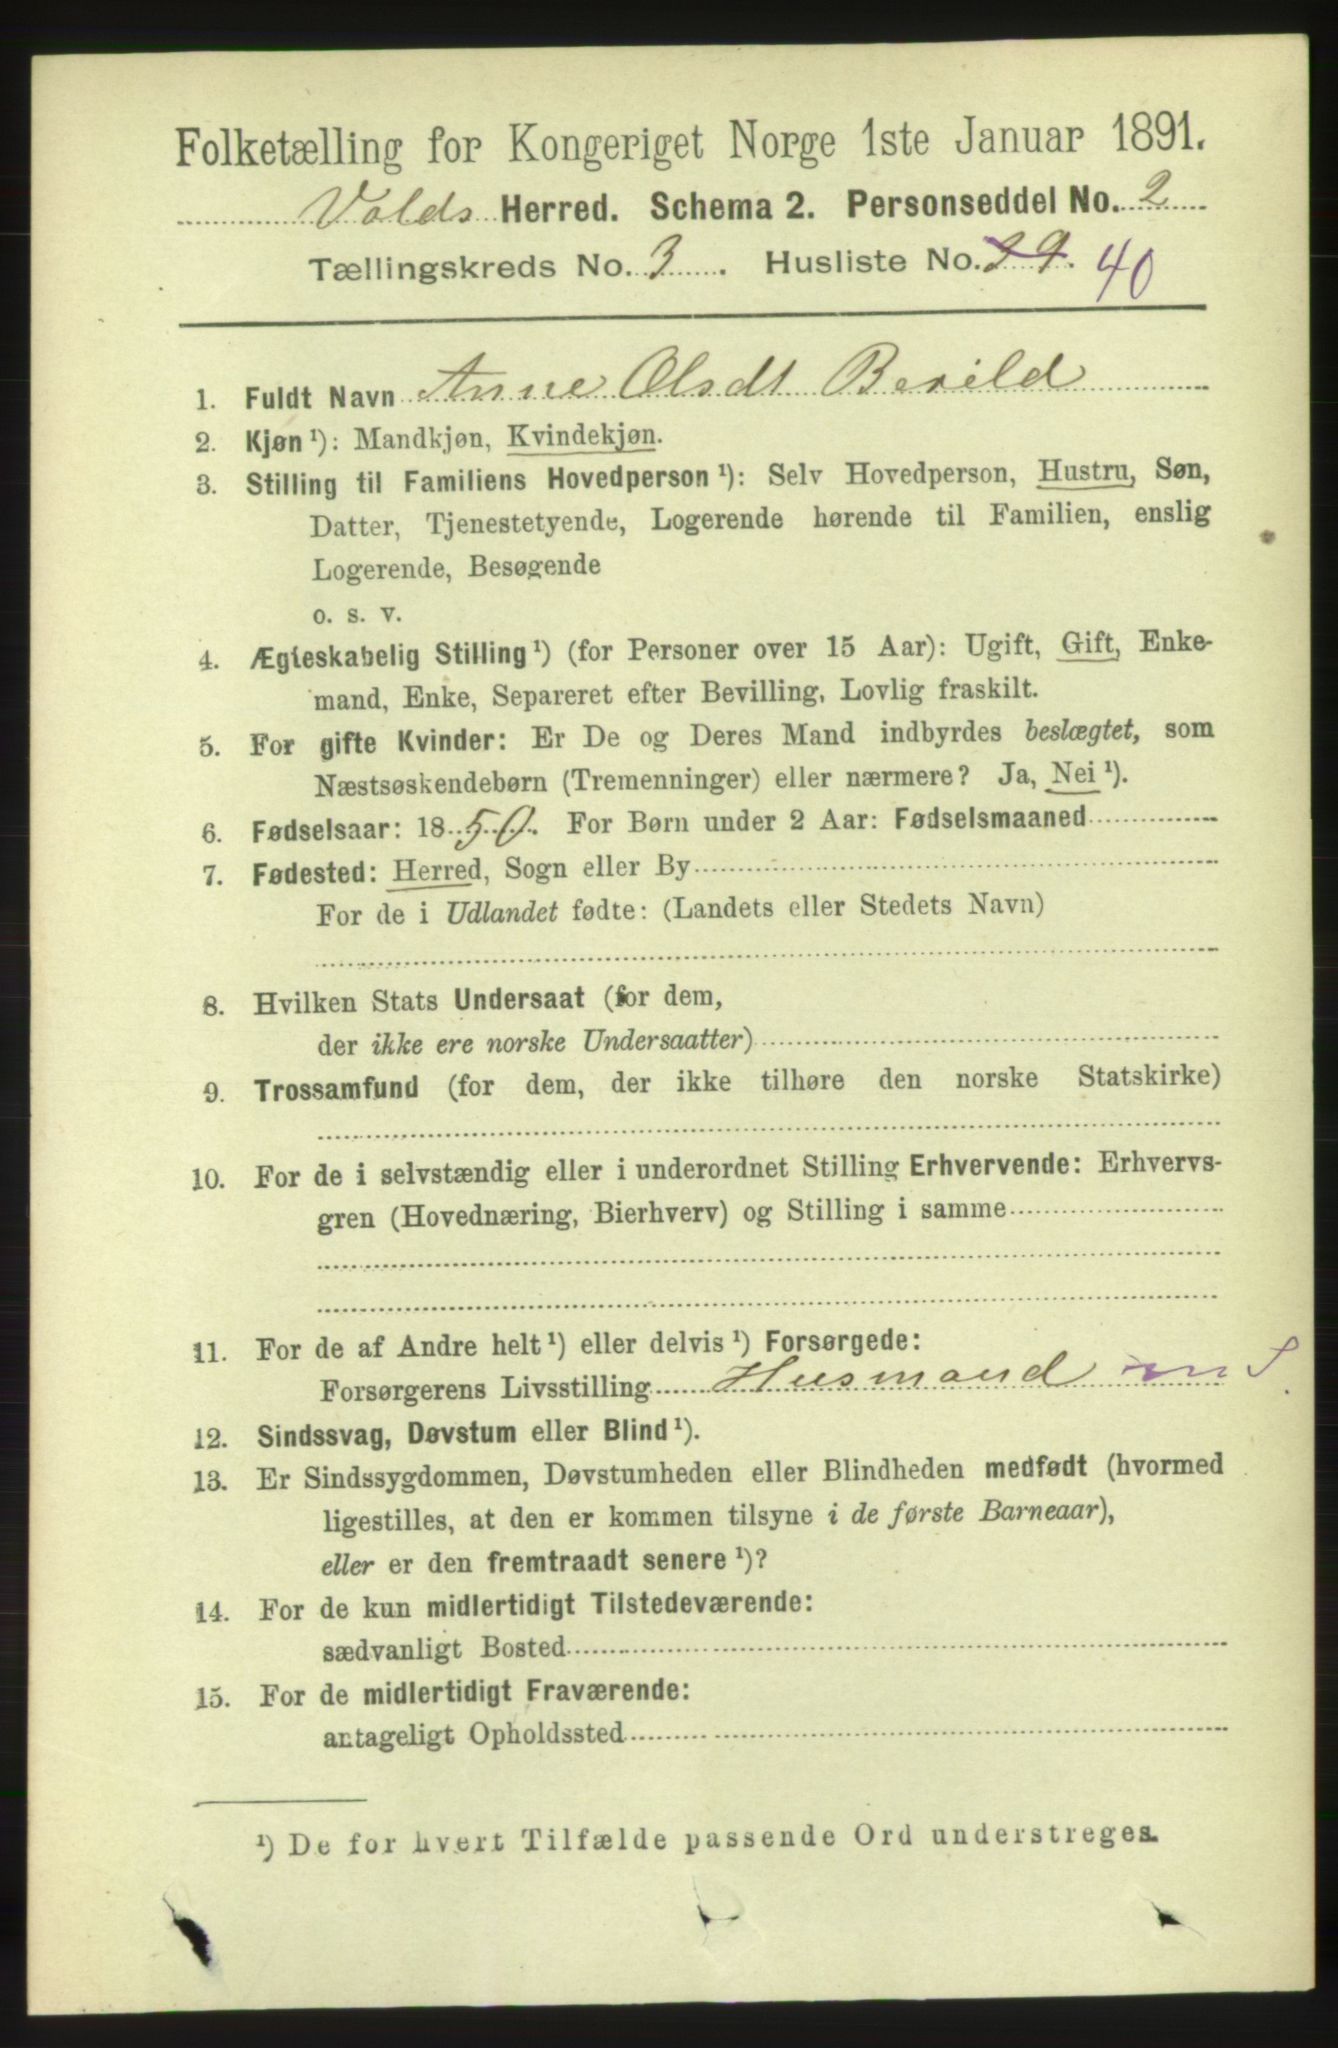 Folketælling for Kongeriget Norge 1ste Januar 1891.
Volds Herred. Schema 2. Personseddel No. 2
Tællingskreds No. 3. Husliste No. 39. 40
1. Fuldt Navn Anne Olsdt Berild
2. Kjøn ¹): Mandkjøn, Kvindekjøn.
3. Stilling til Familiens Hovedperson ¹): Selv Hovedperson, Hustru, Søn,
Datter, Tjenestetyende, Logerende hørende til Familien, enslig
Logerende, Besøgende
o. s. v.
4. Ægteskabelig Stilling ¹) (for Personer over 15 Aar): Ugift, Gift, Enke-
mand, Enke, Separeret efter Bevilling, Lovlig fraskilt.
5. For gifte Kvinder: Er De og Deres Mand indbyrdes beslægtet, som
Næstsøskendebørn (Tremenninger) eller nærmere? Ja, Nei ¹).
6. Fødselsaar: 1850. For Børn under 2 Aar: Fødselsmaaned
7. Fødested: Herred, Sogn eller By
For de i Udlandet fødte: (Landets eller Stedets Navn)
8. Hvilken Stats Undersaat (for dem,
der ikke ere norske Undersaatter)
9. Trossamfund (for dem, der ikke tilhøre den norske Statskirke)
10. For de i selvstændig eller i underordnet Stilling Erhvervende: Erhvervs-
gren (Hovednæring, Bierhverv) og Stilling i samme
11. For de af Andre helt ¹) eller delvis ¹) Forsørgede:
Forsørgerens Livsstilling Husmand m S.
12. Sindssvag, Døvstum eller Blind ¹).
13. Er Sindssygdommen, Døvstumheden eller Blindheden medfødt (hvormed
ligestilles, at den er kommen tilsyne i de første Barneaar),
eller er den fremtraadt senere ¹)?
14. For de kun midlertidigt Tilstedeværende:
sædvanligt Bosted
15. For de midlertidigt Fraværende:
antageligt Opholdssted
¹) De for hvert Tilfælde passende Ord understreges.